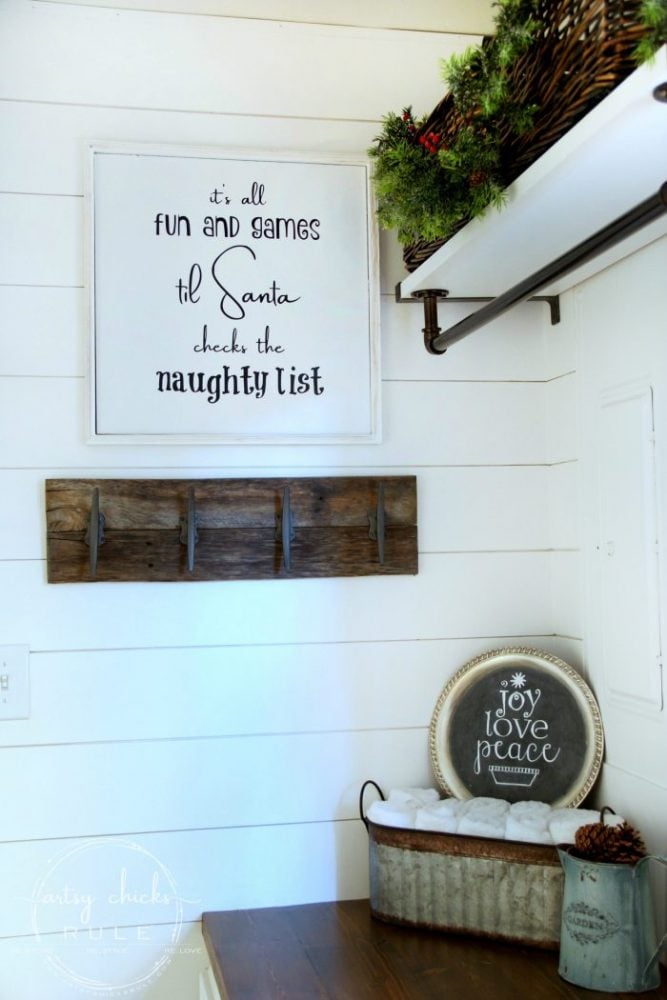 it's all
fun and games
til Santa
checks the
naughty list
joy
love
peace
GARDEN
artsy chicks
RULE